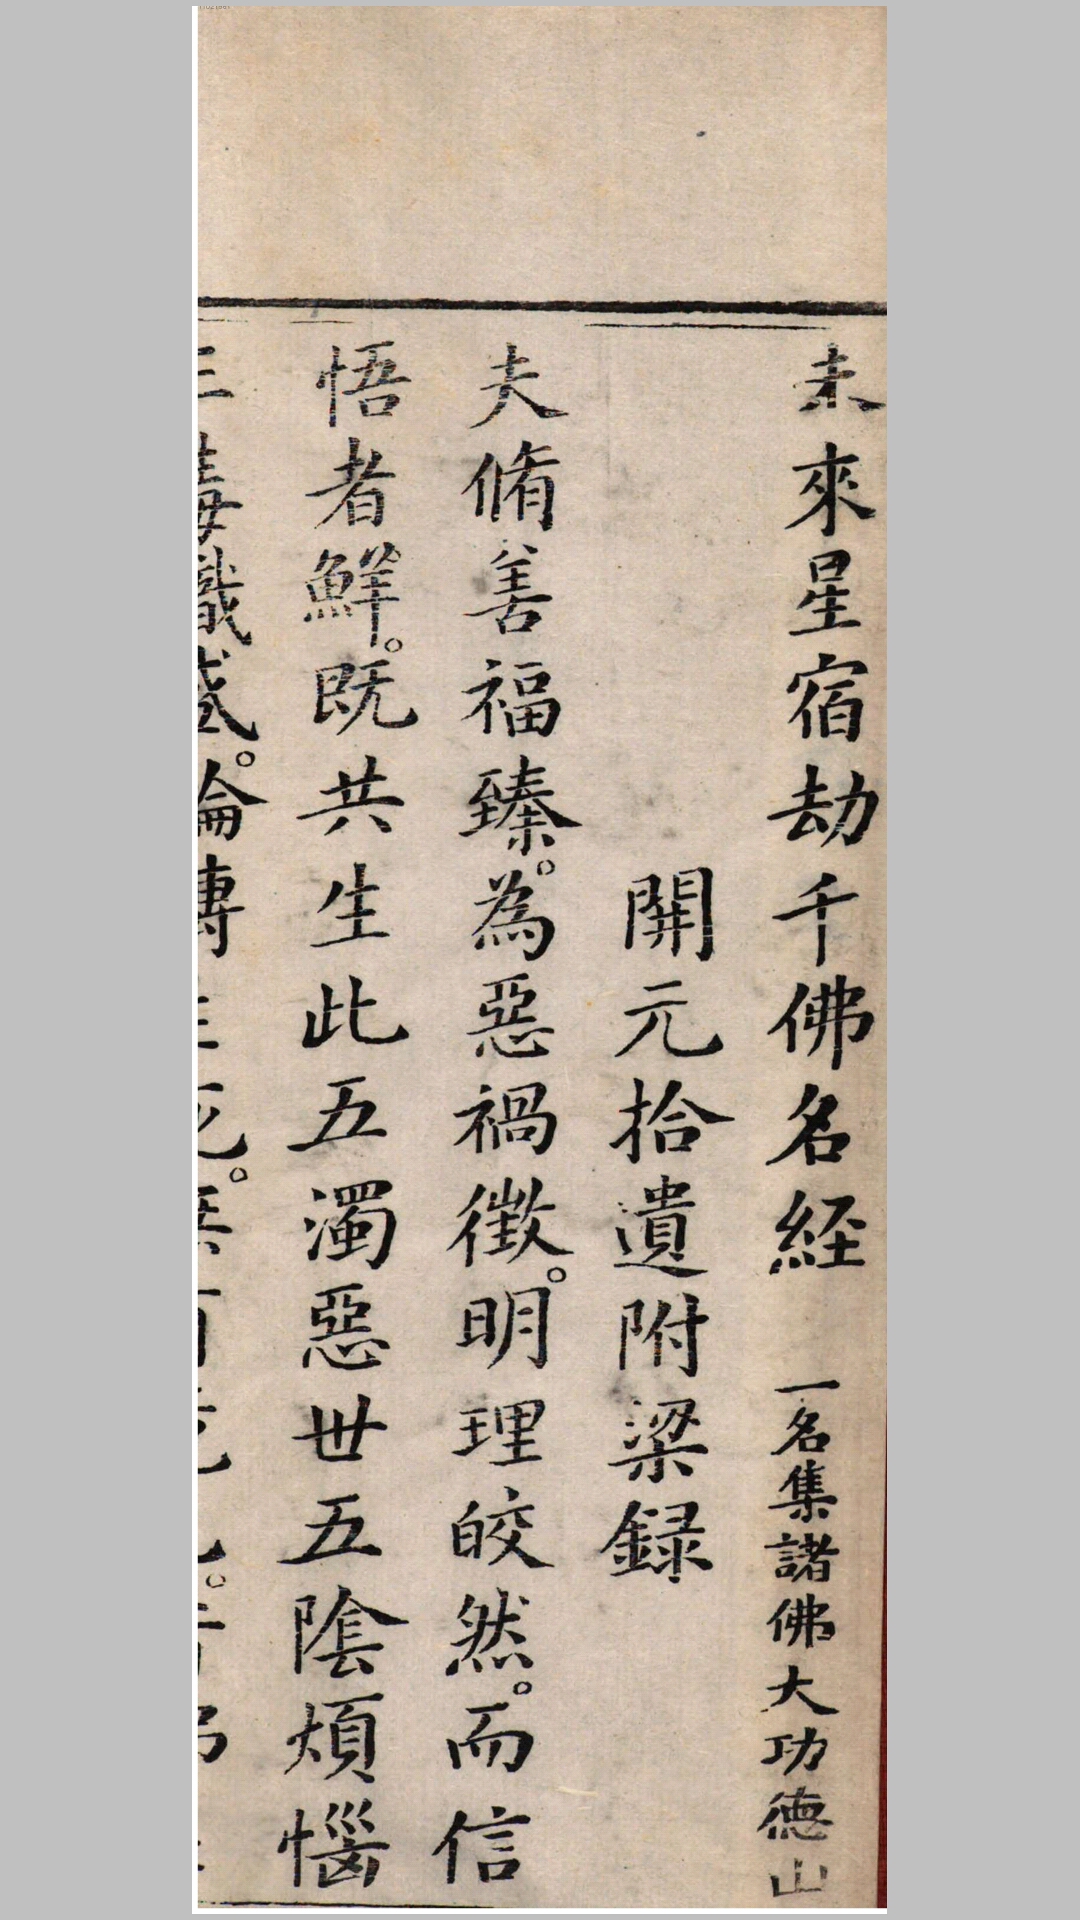 未來星宿劫千佛名經 一名集諸佛大功德山
開元拾遺附梁録
夫脩善福臻。為惡禍徵。明理皎然。而信
悟者鮮。既共生此五濁惡世五陰煩惱
三毒熾盛。輪轉生死。無有